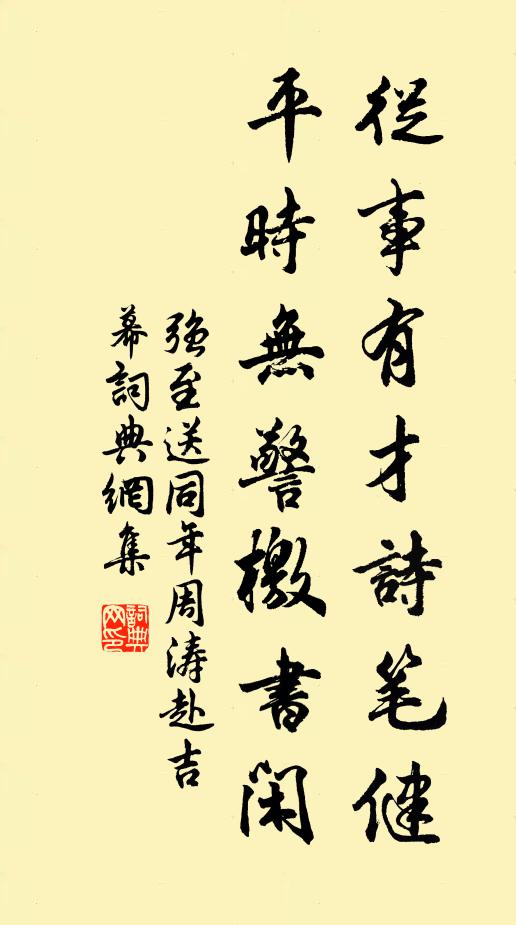 從事有才詩笔健
平時無警檄書閑
强至送同年周涛赴吉
幕詞典網集
詞典网印